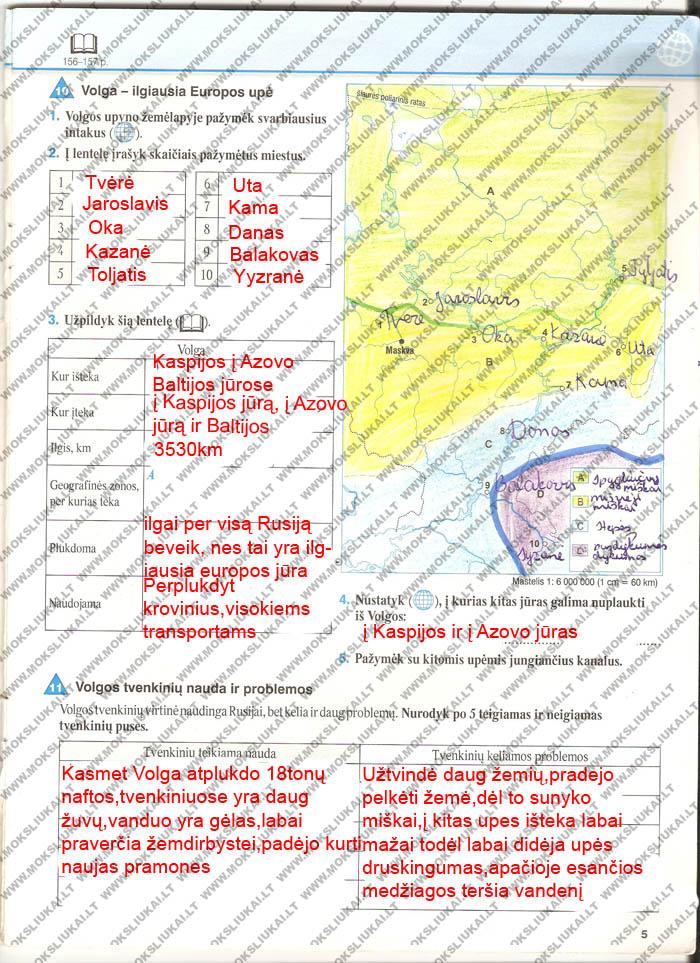 156–157 p.
10 Volga – ilgiausia Europos upė
1. Volgos upyno žemėlapyje pažymėk svarbiausius
intakus ( ).
2. Į lentelę įrašyk skaičiais pažymėtus miestus.
1 Tvėrė 6 Uta
2 Jaroslavis 7 Kama
3 Oka 8 Danas
4 Kazanė 9 Balakovas
5 Toljatis 10 Yyzranė
3. Užpildyk šią lentelę ( ).
Volga
Kur išteka Kaspijos į Azovo
Baltijos jūrose
Kur įteka į Kaspijos jūrą, į Azovo
jūrą ir Baltijos
Ilgis, km 3530km
Geografinės zonos,
per kurias teka
A
Plukdoma ilgai per visą Rusiją
beveik, nes tai yra ilg-
iausia europos jūra
Naudojama Perplukdyt
krovinius,visokiems
transportams
šiaurės poliarinis ratas
A
5 Toljatis
2 Jaroslavis
1 Tverė
Maskva
3 Oka
4 Kazanė
6 Uta
B
7 Kama
8 Donas
C
9 Balakovas
D
10 Syzranė
A Spygliuočių
miškai
B mišrieji
miškai
C Stepės
D pusdykumės
dykumos
Mastelis 1: 6 000 000 (1 cm = 60 km)
4. Nustatyk ( ), į kurias kitas jūras galima nuplaukti
iš Volgos:
į Kaspijos ir į Azovo jūras
5. Pažymėk su kitomis upėmis jungiančius kanalus.
11 Volgos tvenkinių nauda ir problemos
Volgos tvenkinių virtinė naudinga Rusijai, bet kelia ir daug problemų. Nurodyk po 5 teigiamas ir neigiamas
tvenkinių puses.
Tvenkinių teikiama nauda
Kasmet Volga atplukdo 18tonų
naftos,tvenkiniuose yra daug
žuvų,vanduo yra gėlas,labai
praverčia žemdirbystei,padėjo kurti
naujas pramonės
Tvenkinių keliamos problemos
Užtvindė daug žemių,pradėjo
pelkėti žemė,dėl to sunyko
miškai,į kitas upes išteka labai
mažai todėl labai didėja upės
druskingumas,apačioje esančios
medžiagos teršia vandenį
5
WWW.MOKSLIUKAI.LT